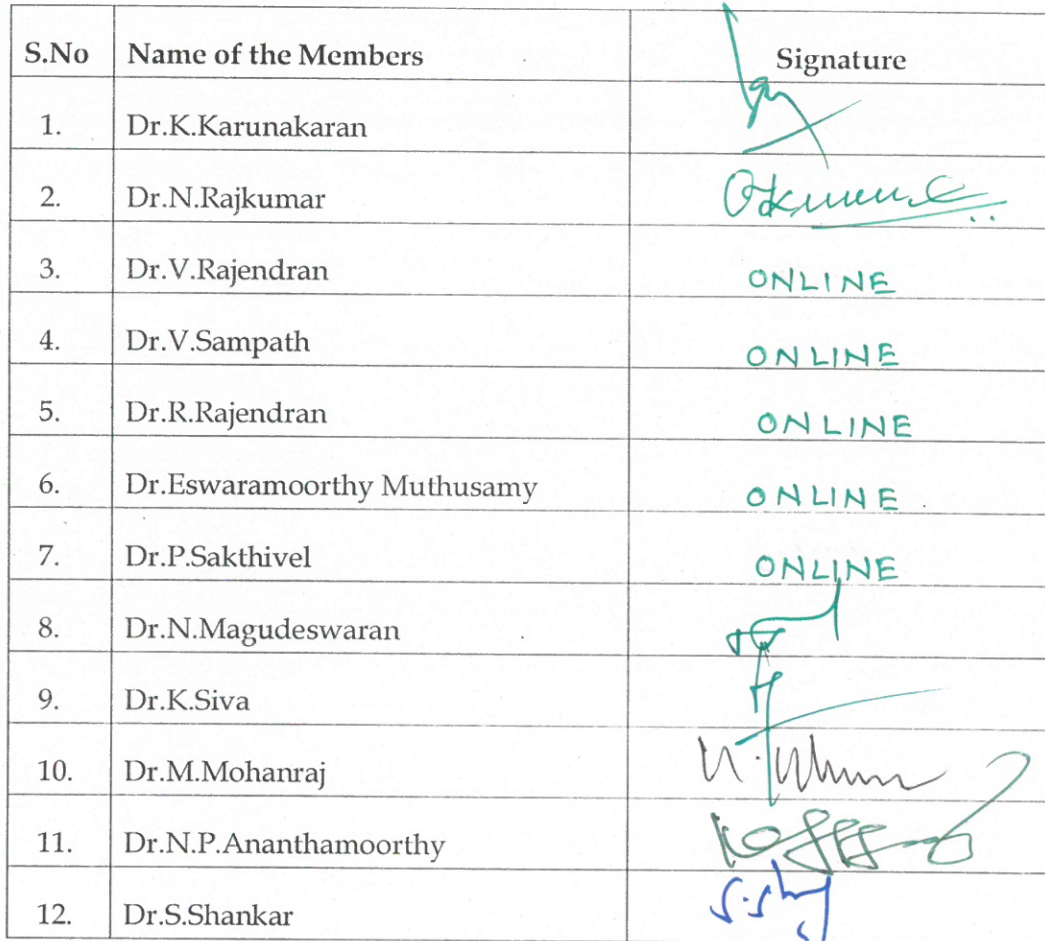 S.No Name of the Members Signature
1. Dr.K.Karunakaran
2. Dr.N.Rajkumar
3. Dr.V.Rajendran ONLINE
4. Dr.V.Sampath ONLINE
5. Dr.R.Rajendran ONLINE
6. Dr.Eswaramoorthy Muthusamy ONLINE
7. Dr.P.Sakthivel ONLINE
8. Dr.N.Magudeswaran
9. Dr.K.Siva
10. Dr.M.Mohanraj
11. Dr.N.P.Ananthamoorthy
12. Dr.S.Shankar